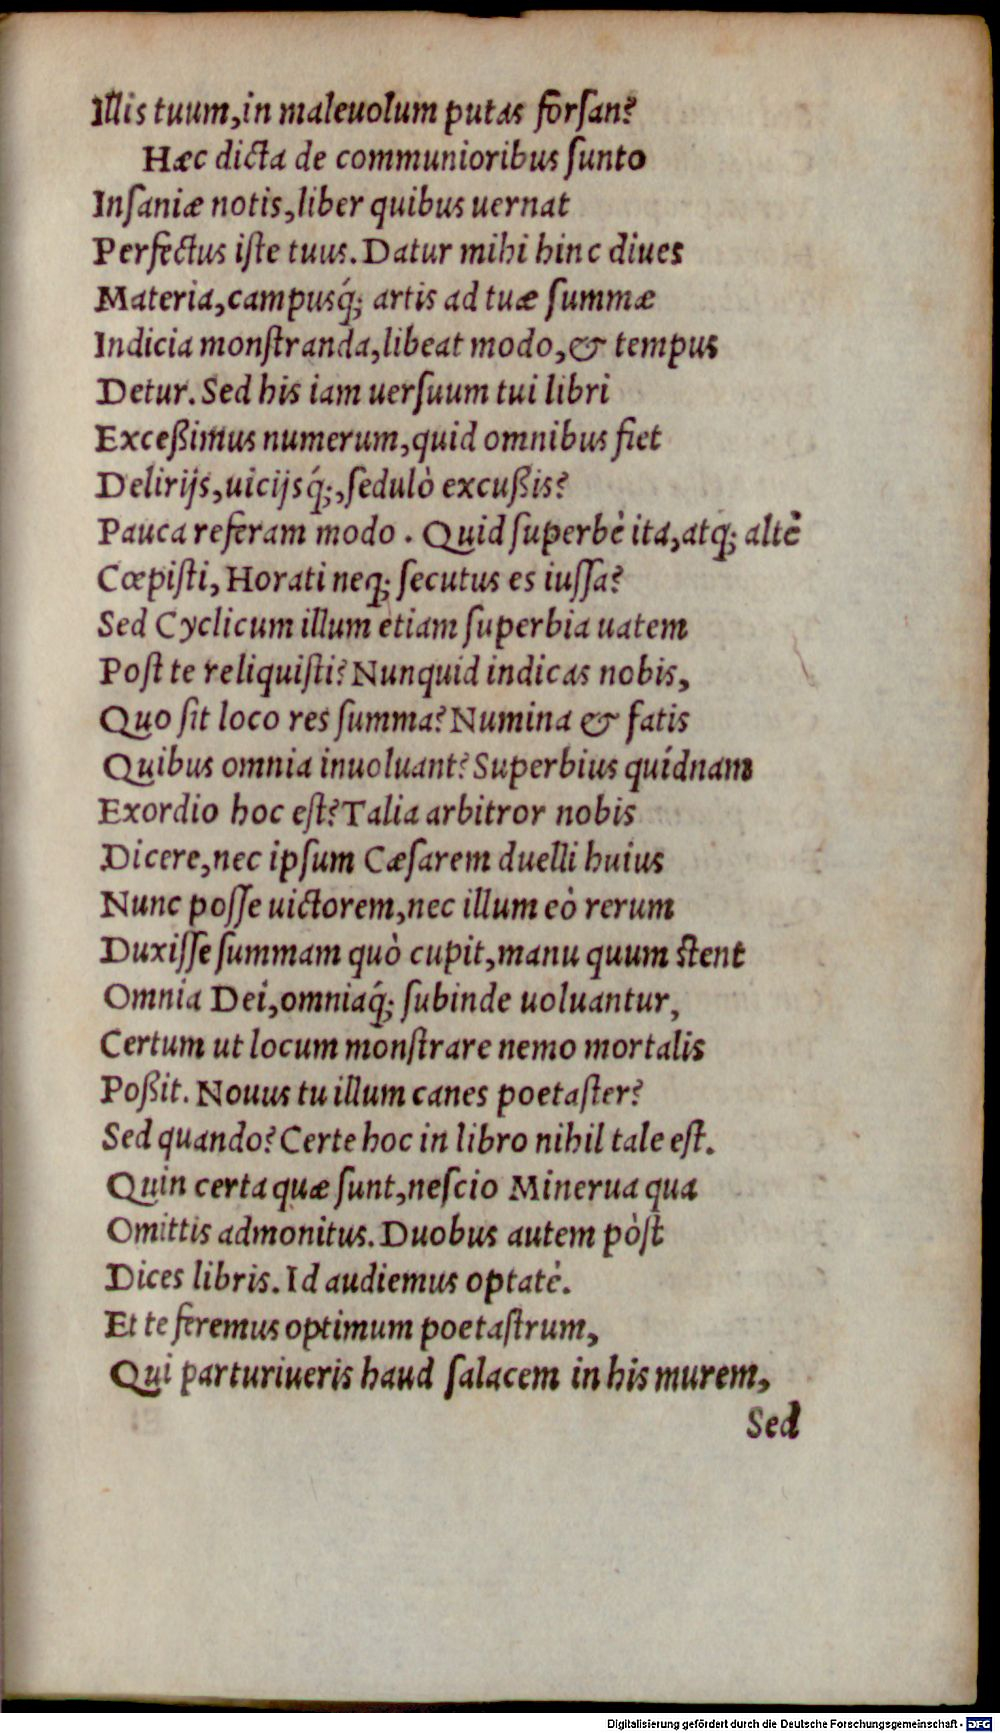 Illis tuum,in maleuolum putas forſan?
Hæc dicta de communioribus ſunto
Inſaniæ notis,liber quibus uernat
Perfectus iſte tuus. Datur mihi hinc diues
Materia,campusq́; artis ad tuæ ſummæ
Indicia monſtranda,libeat modo,& tempus
Detur. Sed his iam uerſuum tui libri
Exceßimus numerum,quid omnibus fiet
Delirijs,uicijsq́;,ſedulò excußis?
Pauca referam modo. Quid ſuperbè ita,atq; altè
Cœpiſti, Horati neq; ſecutus es iuſſa?
Sed Cyclicum illum etiam ſuperbia uatem
Poſt te reliquiſti? Nunquid indicas nobis,
Quo ſit loco res ſumma? Numina & fatis
Quibus omnia inuoluant? Superbius quídnam
Exordio hoc eſt? Talia arbitror nobis
Dicere,nec ipſum Cæſarem duelli huius
Nunc poſſe uictorem,nec illum eò rerum
Duxiſſe ſummam quò cupit,manu quum ſtent
Omnia Dei,omniaq́; ſubinde uoluantur,
Certum ut locum monſtrare nemo mortalis
Poßit. Nouus tu illum canes poetaſter?
Sed quando? Certe hoc in libro nihil tale eſt.
Quin certa quæ ſunt,neſcio Minerua qua
Omittis admonitus. Duobus autem pòſt
Dices libris. Id audiemus optatè.
Et te feremus optimum poetaſtrum,
Qui parturiueris haud ſalacem in his murem,
Sed
Digitalisierung gefördert durch die Deutsche Forschungsgemeinschaft - DFG